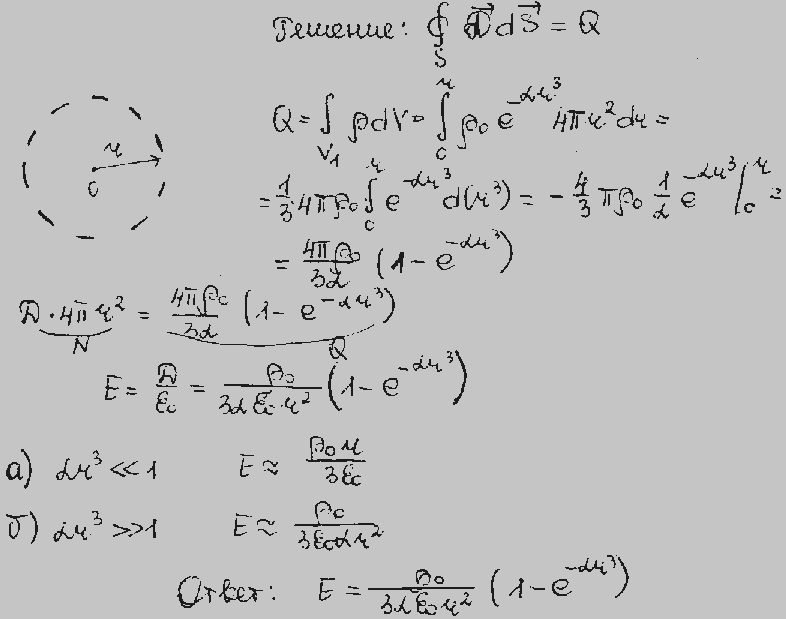 Решение: ∮_S D⃗ dS⃗ = Q
Q = ∫_{V₁} ρdV = ∫_0^r ρ₀ e^{-αr³} 4πr² dr =
= 1/3 4πρ₀ ∫_0^r e^{-αr³} d(r³) = - 4/3 πρ₀ 1/α e^{-αr³} |_0^r =
= 4πρ₀/3α (1 - e^{-αr³})
r
0
D · 4πr² = 4πρ₀/3α (1 - e^{-αr³})
N Q
E = D/ε₀ = ρ₀/3αε₀·r² (1 - e^{-αr³})
а) αr³ ≪ 1 E ≈ ρ₀r/3ε₀
б) αr³ ≫ 1 E ≈ ρ₀/3ε₀αr²
Ответ: E = ρ₀/3αε₀r² (1 - e^{-αr³})